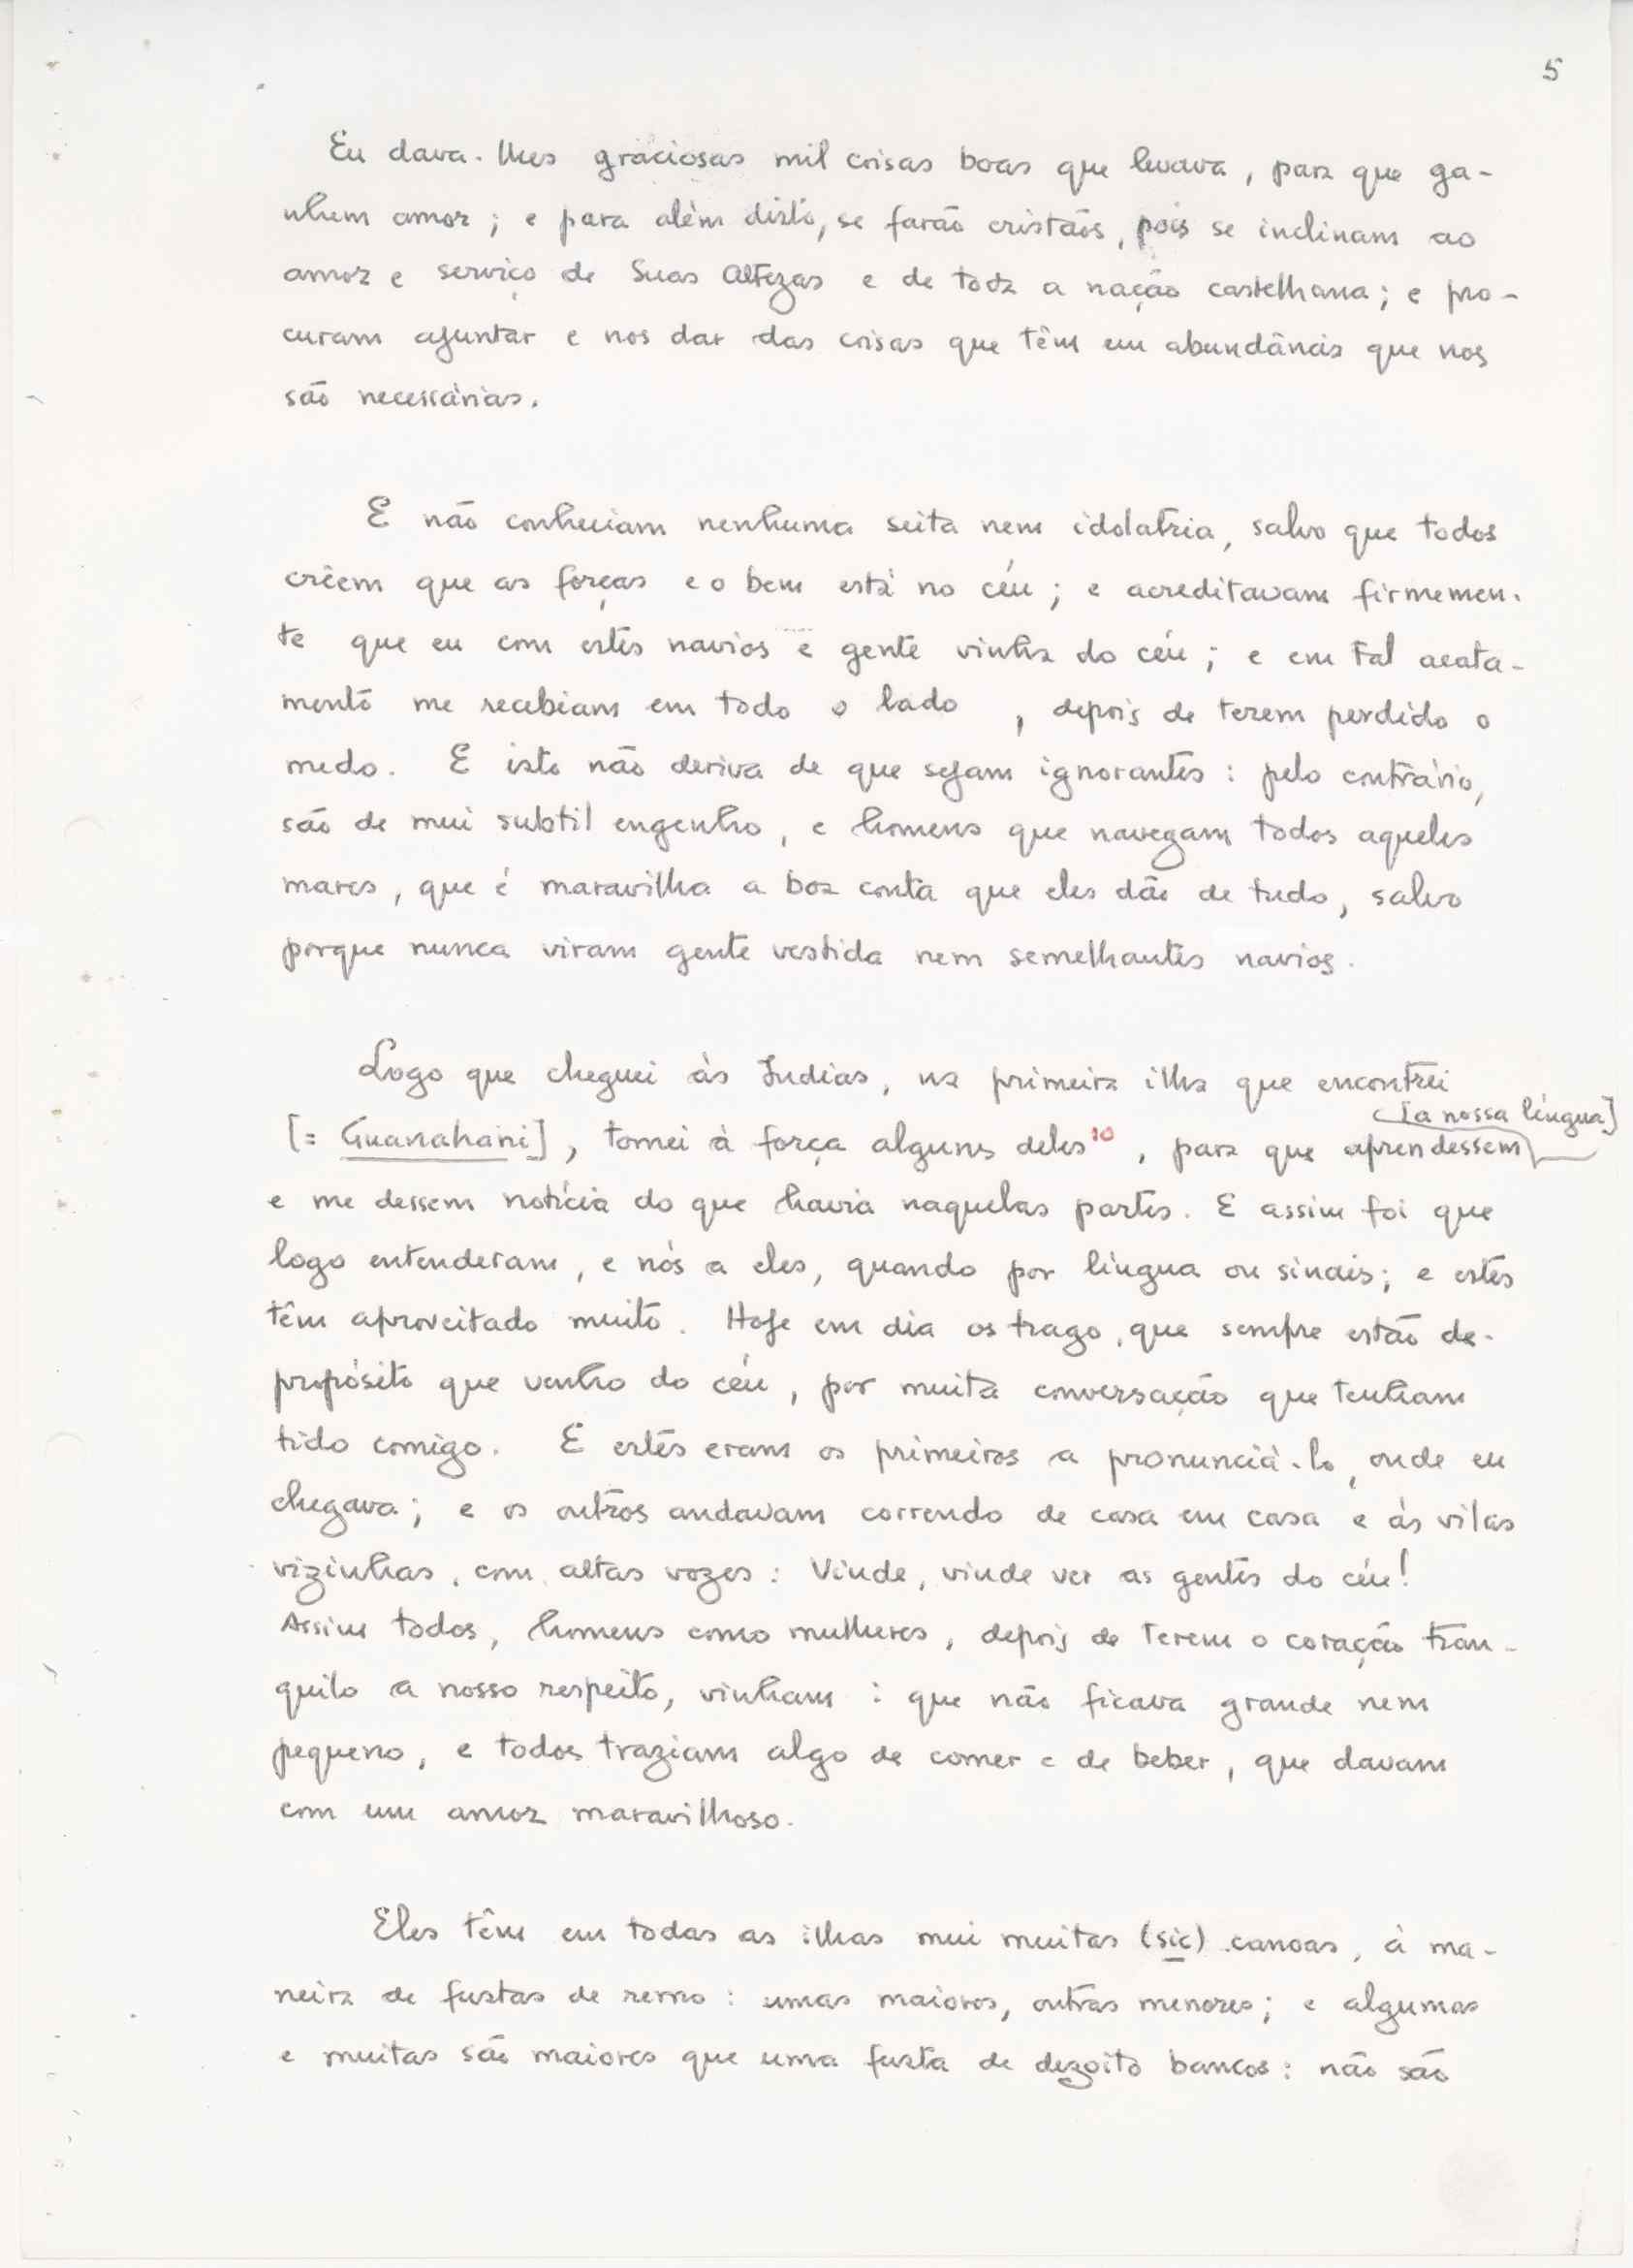 5
Eu dava-lhes graciosas mil coisas boas que levava, para que ga-
nhem amor; e para além disto, se farão cristãos, pois se inclinam ao
amor e serviço de Suas Altezas e de toda a nação castelhana; e pro-
curam ajuntar e nos dar das coisas que têm em abundância que nos
são necessárias.
E não conheciam nenhuma seita nem idolatria, salvo que todos
crêem que as forças e o bem está no céu; e acreditavam firmemen-
te que eu com estes navios e gente vinha do céu; e em tal acata-
mento me recebiam em todo o lado, depois de terem perdido o
medo. E isto não deriva de que sejam ignorantes: pelo contrário,
são de mui subtil engenho, e homens que navegam todos aqueles
mares, que é maravilha a boa conta que eles dão de tudo, salvo
porque nunca viram gente vestida nem semelhantes navios.
Logo que cheguei às Índias, na primeira ilha que encontrei
[= Guanahani], tomei à força alguns deles¹⁰, para que aprendessem [a nossa língua]
e me dessem notícia do que havia naquelas partes. E assim foi que
logo entenderam, e nós a eles, quando por língua ou sinais; e estes
têm aproveitado muito. Hoje em dia os trago, que sempre estão de-
propósito que venho do céu, por muita conversação que tenham
tido comigo. E estes eram os primeiros a pronunciá-lo, onde eu
chegava; e os outros andavam correndo de casa em casa e às vilas
vizinhas, com altas vozes: Vinde, vinde ver as gentes do céu!
Assim todos, homens como mulheres, depois de terem o coração tran-
quilo a nosso respeito, vinham: que não ficava grande nem
pequeno, e todos traziam algo de comer e de beber, que davam
com um amor maravilhoso.
Eles têm em todas as ilhas mui muitas (sic) canoas, à ma-
neira de fustas de remo: umas maiores, outras menores; e algumas
e muitas são maiores que uma fusta de dezoito bancos: não são